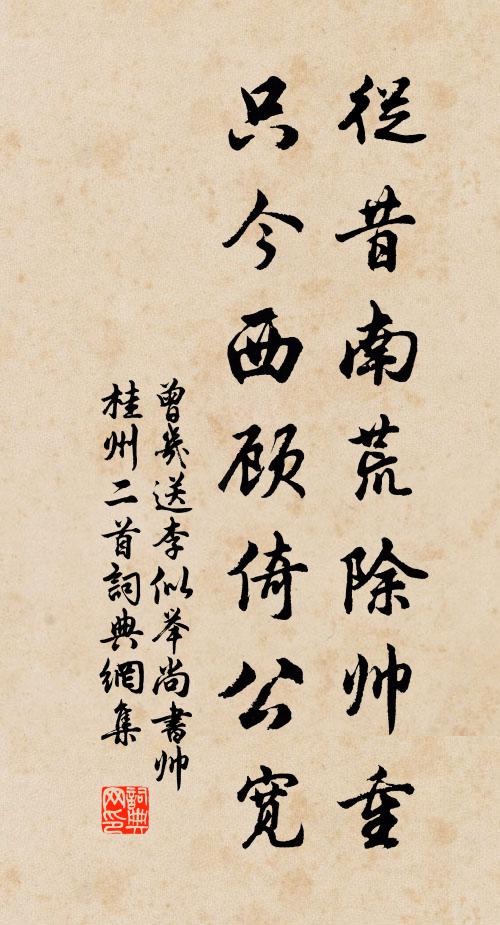 從昔南荒除帅重
只今西顾倚公寬
曾幾送李似举尚書帅
桂州二首詞典網集
詞典
网印